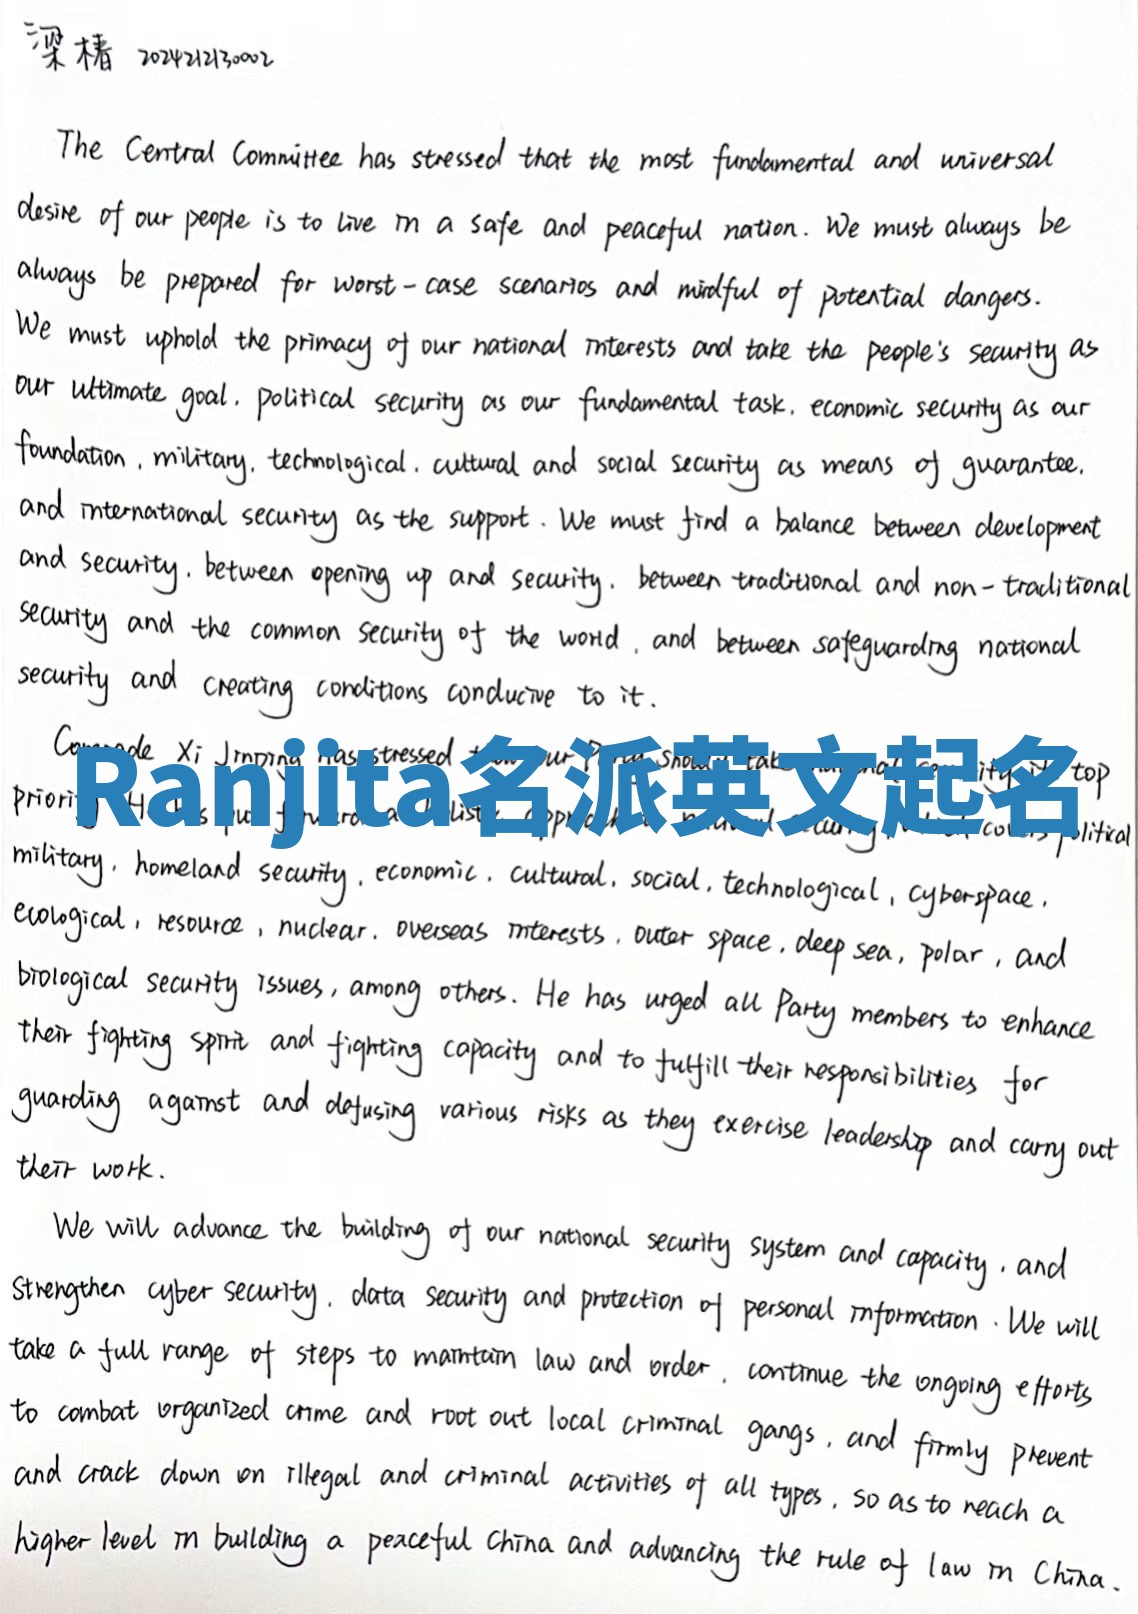 梁椿 2024212130002
The Central Committee has stressed that the most fundamental and universal
desire of our people is to live in a safe and peaceful nation. We must always be
always be prepared for worst-case scenarios and mindful of potential dangers.
We must uphold the primacy of our national interests and take the people's security as
our ultimate goal, political security as our fundamental task, economic security as our
foundation, military, technological, cultural and social security as means of guarantee,
and international security as the support. We must find a balance between development
and security, between opening up and security, between traditional and non-traditional
security and the common security of the world, and between safeguarding national
security and creating conditions conducive to it.
Xi Jinping has stressed our top
Ranjita名派英文起名
political
military, homeland security, economic, cultural, social, technological, cyberspace,
ecological, resource, nuclear, overseas interests, outer space, deep sea, polar, and
biological security issues, among others. He has urged all Party members to enhance
their fighting spirit and fighting capacity and to fulfill their responsibilities for
guarding against and defusing various risks as they exercise leadership and carry out
their work.
We will advance the building of our national security system and capacity, and
strengthen cyber security, data security and protection of personal information. We will
take a full range of steps to maintain law and order, continue the ongoing efforts
to combat organized crime and root out local criminal gangs, and firmly prevent
and crack down on illegal and criminal activities of all types, so as to reach a
higher level in building a peaceful China and advancing the rule of law in China.